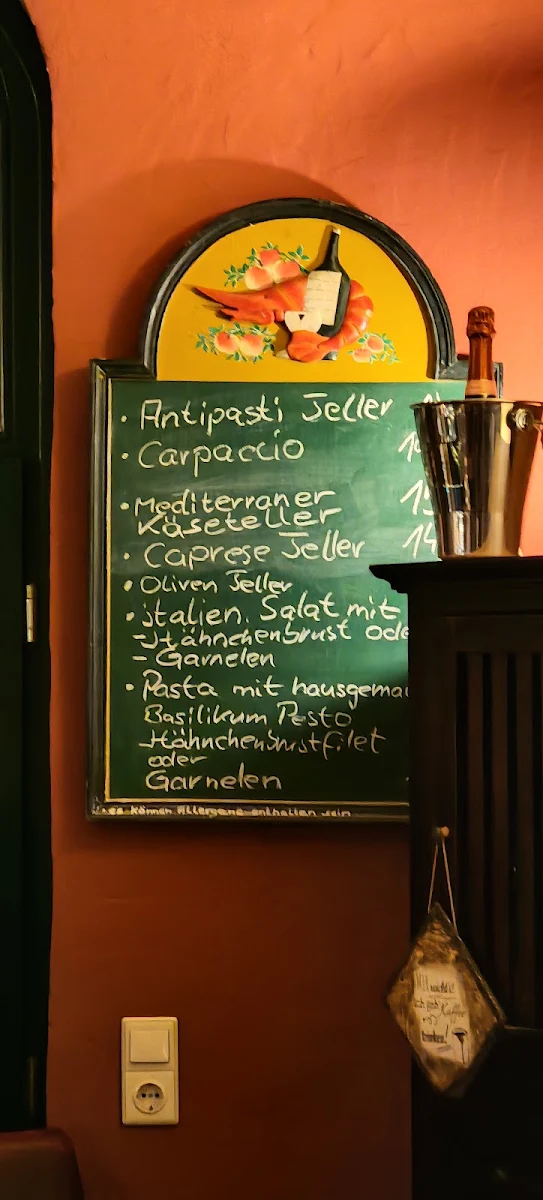 • Antipasti Teller
• Carpaccio
• Mediterraner 15
Käseteller
• Caprese Teller 14
• Oliven Teller
• italien. Salat mit
- Hähnchenbrust ode
- Garnelen
• Pasta mit hausgema
Basilikum Pesto
Hähnchenbrustfilet
oder
Garnelen
es können Allergene enthalten sein
Kaffee
trinken!